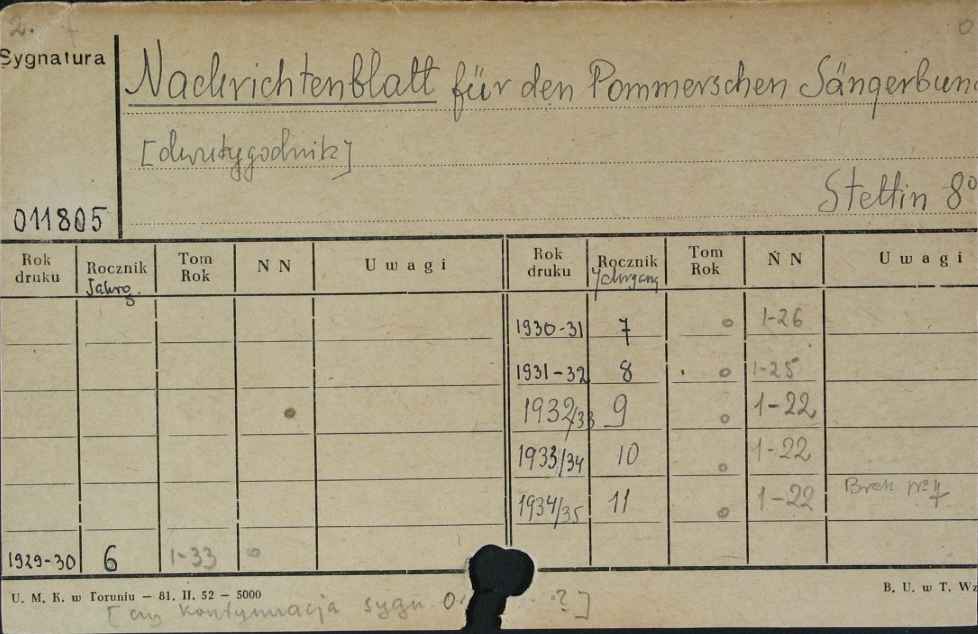 2.
Sygnatura
Nachrichtenblatt für den Pommerschen Sängerbund
[dwutygodnik]
Stettin 8°
011805
Rok druku Rocznik Tom Rok N N Uwagi Rok druku Rocznik Tom Rok N N Uwagi
Jahrg. Jahrgang
1930-31 7 1-26
1931-32 8 1-25
1932/33 9 1-22
1933/34 10 1-22
1934/35 11 1-22 Brak nr 4
1929-30 6 1-33
U. M. K. w Toruniu — 81. II. 52 — 5000 B. U. w T. Wz
[czy kontynuacja sygn 0 ?]